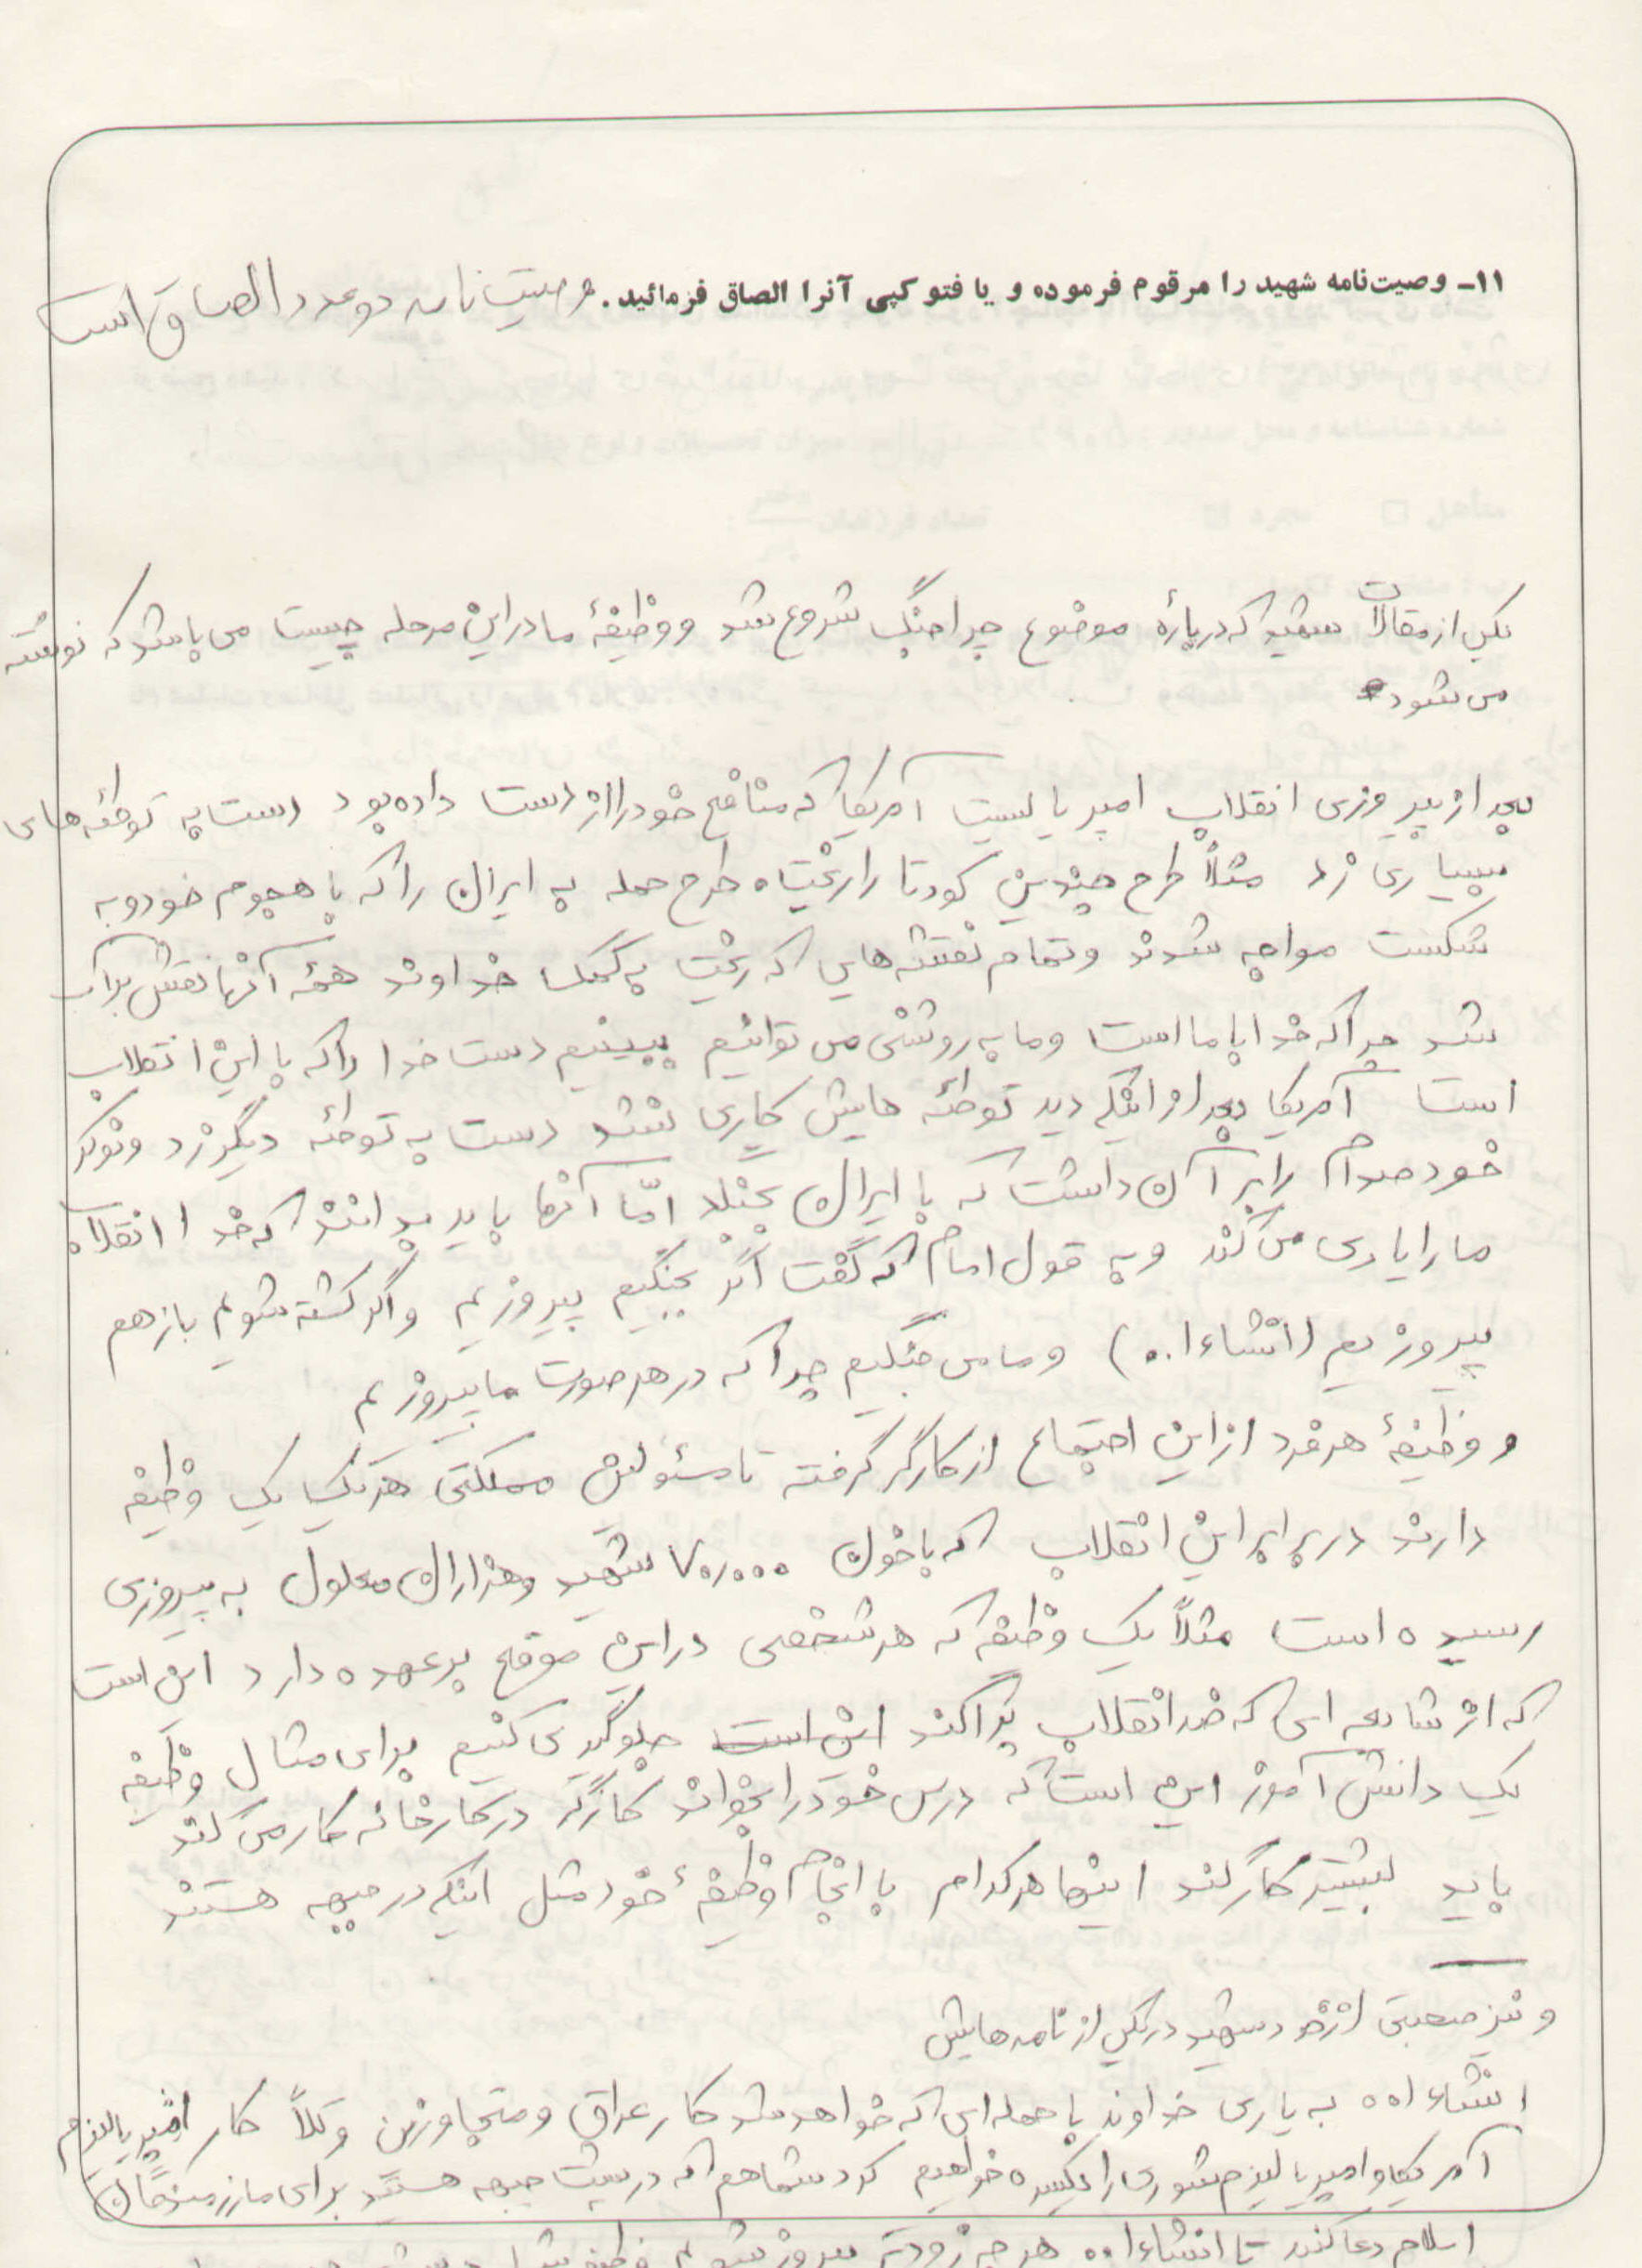 ۱۱ـ وصیت‌نامه شهید را مرقوم فرموده و یا فتوکپی آنرا الصاق فرمائید. وصیت نامه دو عدد الصاق است
یکی از مقالات شهید که دربارۀ موضوع چرا جنگ شروع شد و وظیفۀ ما در این مرحله چیست می باشد که نوشته
می شود
بعد از پیروزی انقلاب امپریالیست آمریکا که منافع خود را از دست داده بود دست به توطئه های
بسیاری زد مثلاً طرح چندین کودتا را ریخت، طرح حمله به ایران را که با هجوم خود و به
شکست مواجه شدند و تمام نقشه هایی که ریخت به کمک خداوند همۀ آنها نقش بر آب
شد چرا که خدا با ما است و ما به روشنی می توانیم ببینیم دست خدا را که با این انقلاب
است آمریکا بعد از اینکه دید توطئه هایش کاری نشد دست به توطئه دیگر زد و نوکر
خود صدام را بر آن داشت که با ایران بجنگد امّا آنها باید بدانند که خدا انقلاب
ما را یاری می کند و به قول امام که گفت اگر بجنگیم پیروزیم و اگر کشته شویم باز هم
پیروزیم (انشاءا..) و ما می جنگیم چرا که در هر صورت ما پیروزیم
و وظیفۀ هر فرد از این اجتماع از کارگر گرفته تا مسئولین مملکتی هر یک یک وظیفه
دارند در برابر این انقلاب که با خون ۷۰،۰۰۰ شهید و هزاران معلول به پیروزی
رسیده است مثلاً یک وظیفه که هر شخصی در این موقع بر عهده دارد این است
که از شایعه ای که ضد انقلاب پراکند این است جلوگیری کنیم برای مثال وظیفه
یک دانش آموز این است که درس خود را بخواند کارگر در کارخانه کار می کند
باید بیشتر کار کند اینها هر کدام با انجام وظیفۀ خود مثل اینکه در جبهه هستند
و نیز صحبتی از خود شهید در یکی از نامه هایش
انشاءا.. به یاری خداوند با حمله ای که خواهد شد کار عراق و متجاوزین و کلاً کار امپریالیزم
آمریکا و امپریالیزم شوروی را یکسره خواهیم کرد شما هم که در پشت جبهه هستید برای ما رزمندگان
اسلام دعا کنید تا انشاءا.. هر چه زودتر پیروز شویم